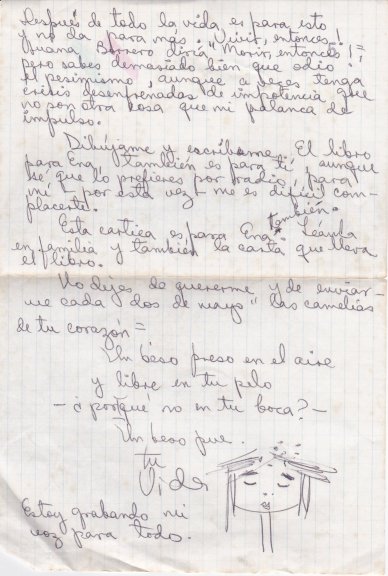 después de todo la vida es para esto
y no da para más. ¡Vivir, entonces!
Juana Borrero diría "Morir, entonces!",
pero sabes demasiado bien que odio
el pesimismo, aunque a veces tenga
crisis desenfrenadas de impotencia que
no son otra cosa que mi palanca de
impulso.
Dibújame y escríbeme. El libro
para Ena, también es para ti, aunque
sé que lo prefieres por radio, para
mí - por esta vez - me es difícil com-
placerte.
Esta cartica es para Ena también. Léanla
en familia y también la carta que lleva
el libro.
No dejes de quererme y de enviar-
me cada "dos de mayo" las camelias
de tu corazón =
Un beso preso en el aire
y libre en tu pelo
- ¿porqué no en tu boca? -
Un beso pue.
tu
Vida
Estoy grabando mi
voz para todo.